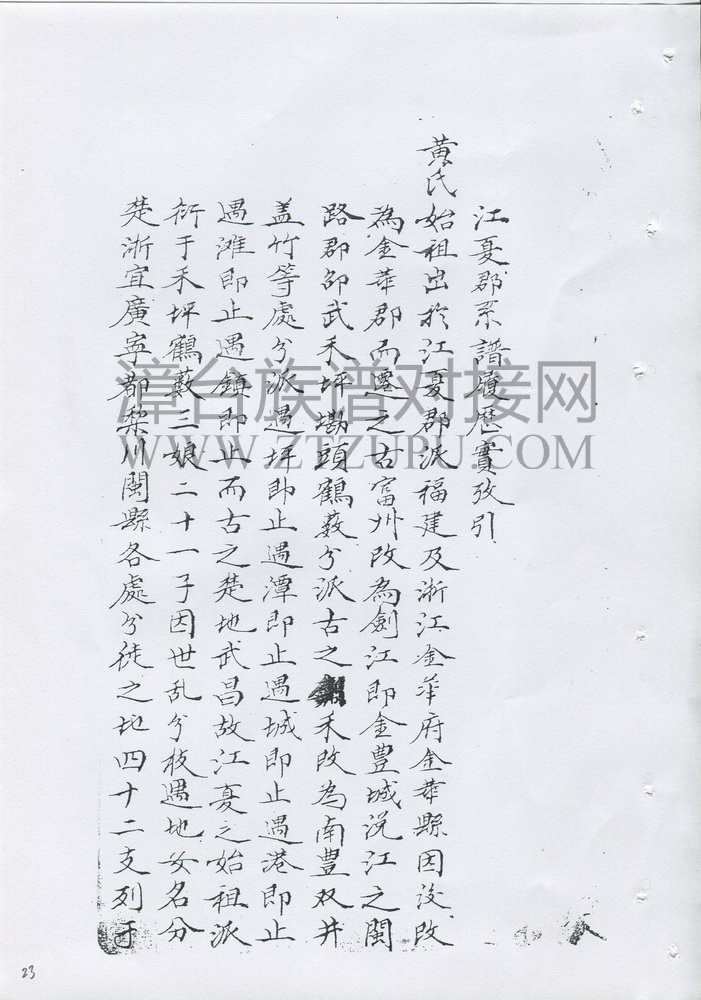 江夏郡系譜履歷實攷引
黄氏始祖出於江夏郡派福建及浙江金華府金華縣因汝改
為金華郡而遷之古富州改為劍江即金豊城浼江之閩
路郡邵武禾坪墈頭鶴薮分派古之禾改為南豊双井
盖竹等處分派遇坪即止遇潭即止遇城即止遇港即止
遇滩即止遇鎮即止而古之楚地武昌故江夏之始祖派
衍于禾坪鶴薮三娘二十一子因世乱分枝遇地安名分
楚浙宜廣寜都梨川閩縣各處分徒之地四十二支列于
漳台族谱对接网
WWW.ZTZUPU.COM
23